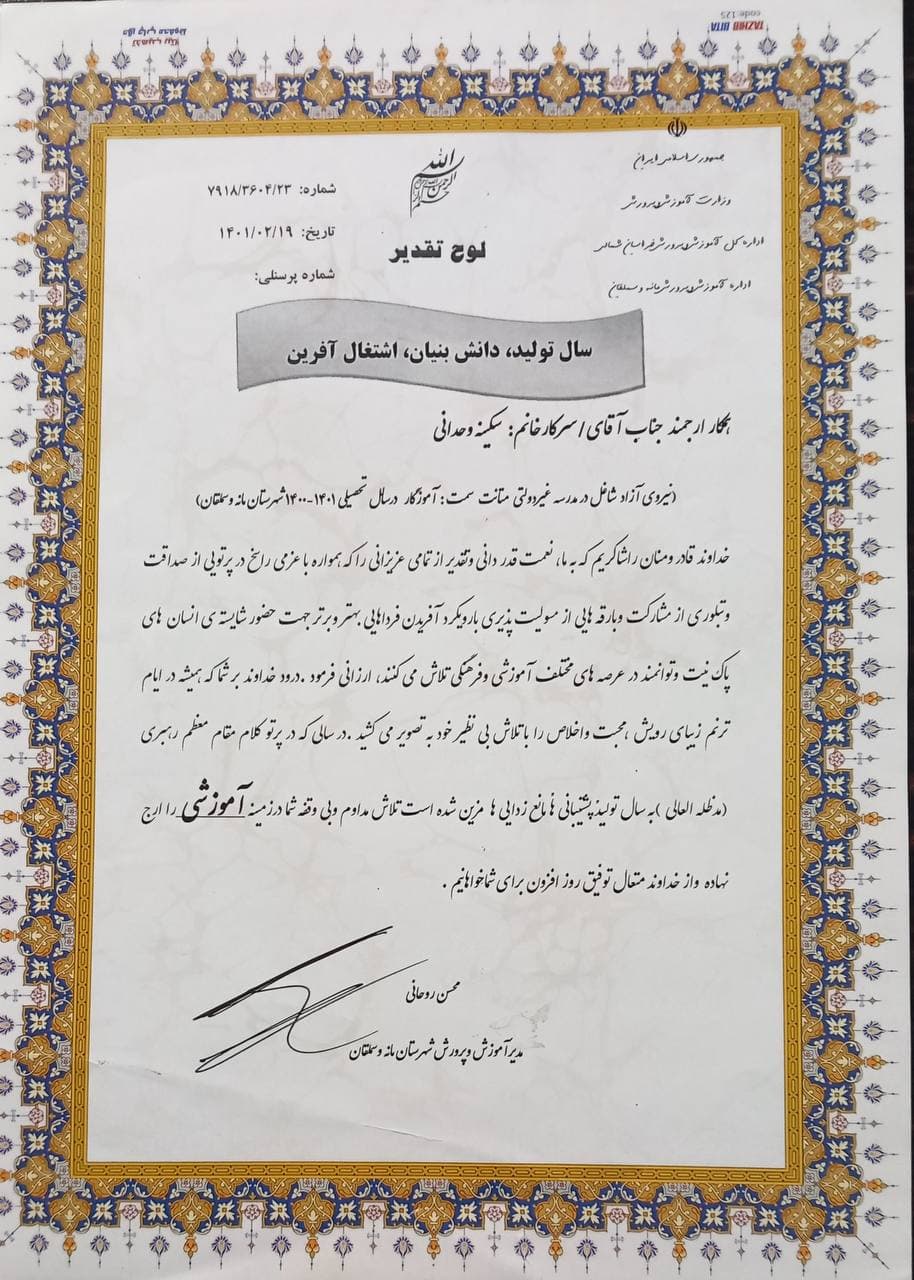 TAZHIB BITA
code:125
تذهیب بیتا
حق چاپ محفوظ
جمهوری اسلامی ایران
وزارت آموزش و پرورش
اداره کل آموزش و پرورش خراسان شمالی
اداره آموزش و پرورش مانه و سملقان
بسم الله الرحمن الرحیم
لوح تقدیر
شماره: ۷۹۱۸/۳۶۰۴/۲۳
تاریخ: ۱۴۰۱/۰۲/۱۹
شماره پرسنلی:
سال تولید، دانش بنیان، اشتغال آفرین
همکار ارجمند جناب آقای/سرکارخانم: سکینه وحدانی
(نیروی آزاد شاغل در مدرسه غیردولتی متانت سمت: آموزگار درسال تحصیلی ۱۴۰۱-۱۴۰۰ شهرستان مانه وسملقان)
خداوند قادر ومنان راشاکریم که به ما، نعمت قدر دانی وتقدیر از تمامی عزیزانی راکه همواره با عزمی راسخ در پرتویی از صداقت
وتبلوری از مشارکت وبارقه هایی از مسولیت پذیری بارویکرد آفریدن فرداهایی بهتر وبرتر جهت حضور شایسته ی انسان های
پاک نیت وتوانمند در عرصه های مختلف آموزشی وفرهنگی تلاش می کنند، ارزانی فرمود .درود خداوند بر شما که همیشه در ایام
ترنم زیبای رویش ،محبت واخلاص را با تلاش بی نظیر خود به تصویر می کشید .در سالی که در پرتو کلام مقام معظم رهبری
(مدظله العالی )به سال تولید؛پشتیبانی ها،مانع زدایی ها مزین شده است تلاش مداوم وبی وقفه شما درزمینه آموزشی را ارج
نهاده واز خداوند متعال توفیق روز افزون برای شماخواهانیم .
محسن روحانی
مدیرآموزش وپرورش شهرستان مانه وسملقان